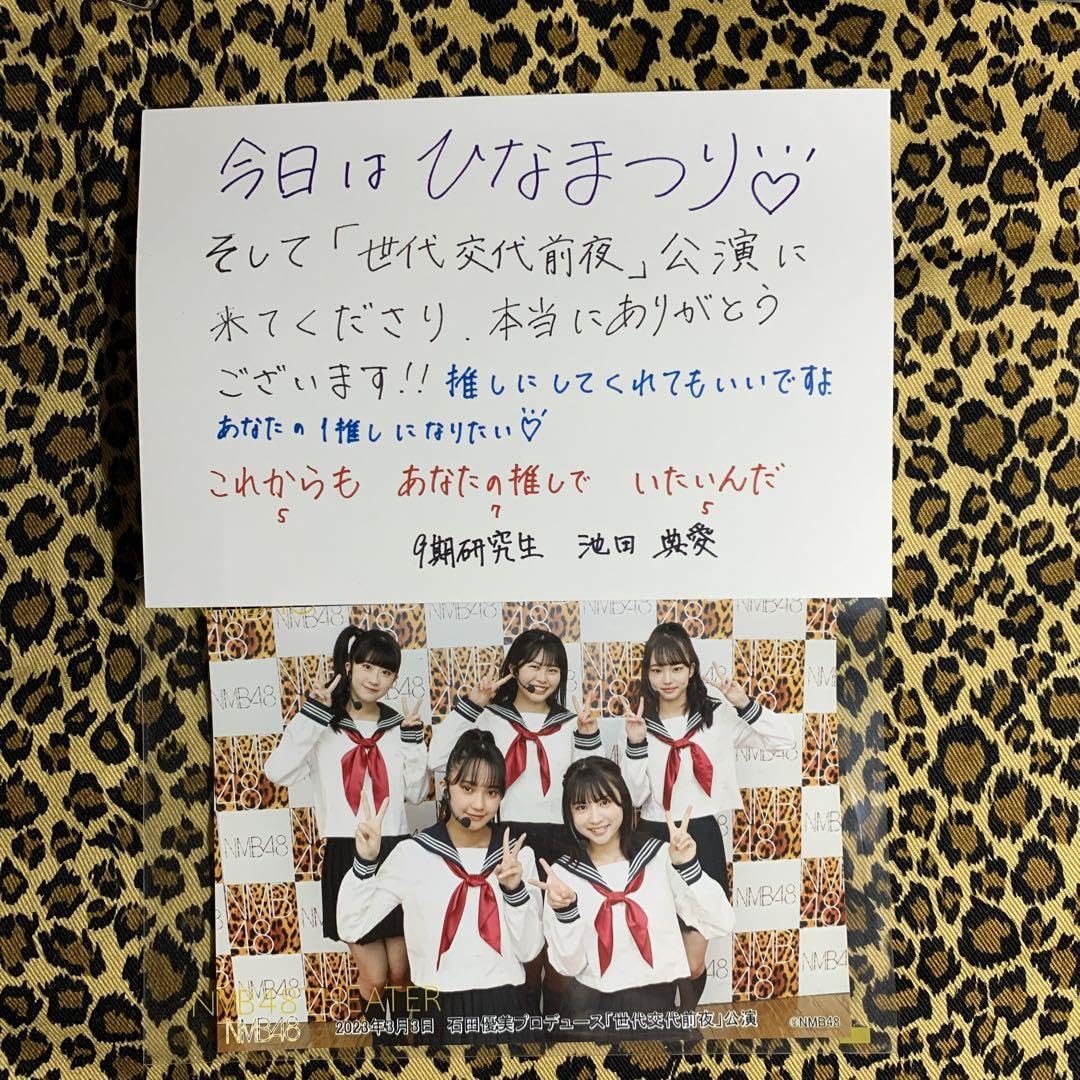 今日はひなまつり♡
そして「世代交代前夜」公演に
来てくださり、本当にありがとう
ございます!! 推しにしてくれてもいいですよ
あなたの1推しになりたい♡
これからも あなたの推しで いたいんだ
5 7 5
9期研究生 池田 典愛
NMB48
NMB48 THEATER
NMB48
2023年3月3日 石田優美プロデュース「世代交代前夜」公演
©NMB48